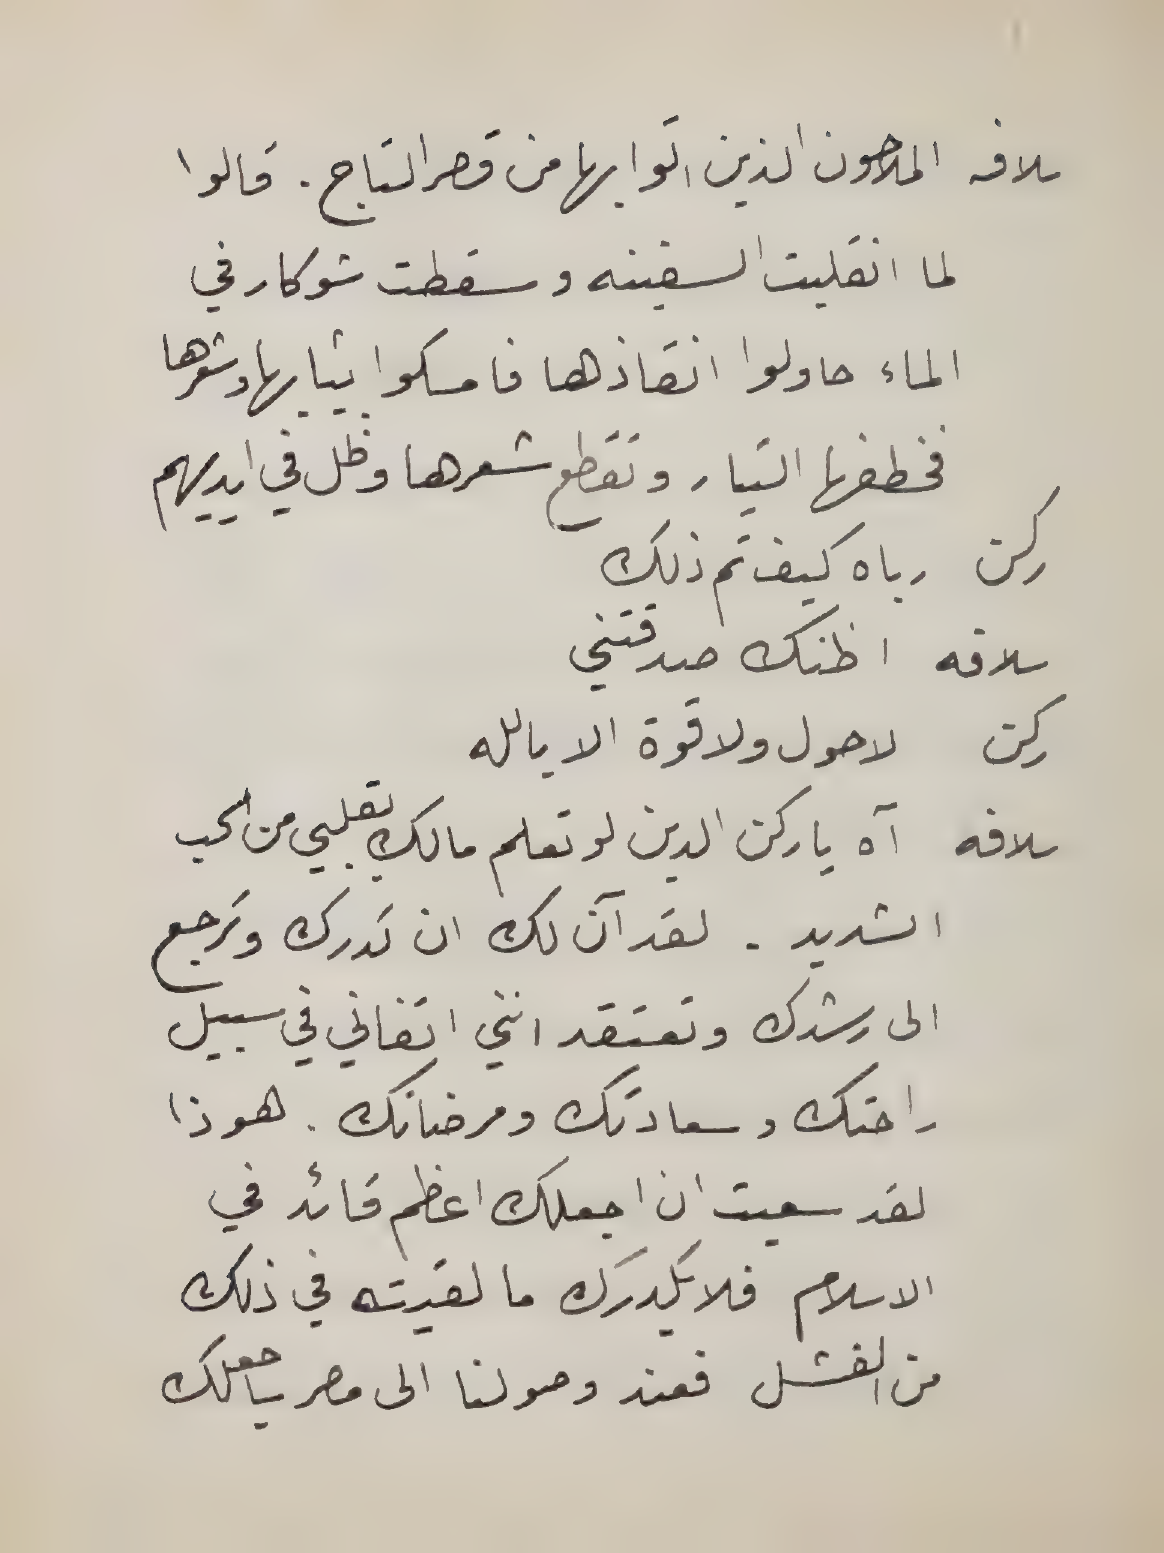 سلافه الملاحون الذين اتوا بها من قصر التاج . قالوا
لما انقلبت السفينه وسقطت شوكار في
الماء حاولوا انقاذها فامسكوا بثيابها وشعرها
فخطفها التيار وتقطع شعرها وظل في ايديهم
ركن رباه كيف تم ذلك
سلافه اظنك صدقتني
ركن لاحول ولا قوة الا بالله
سلافه آه يا ركن الدين لو تعلم مالك بقلبي من الحب
الشديد . لقد آن لك ان تدرك وترجع
الى رشدك وتعتقد انني اتفاني في سبيل
راحتك وسعادتك ومرضاتك . هوذا
لقد سعيت ان اجعلك اعظم قائد في
الاسلام فلا يكدرك ما لقيته في ذلك
من الفشل فعند وصولنا الى مصر ساجعلك